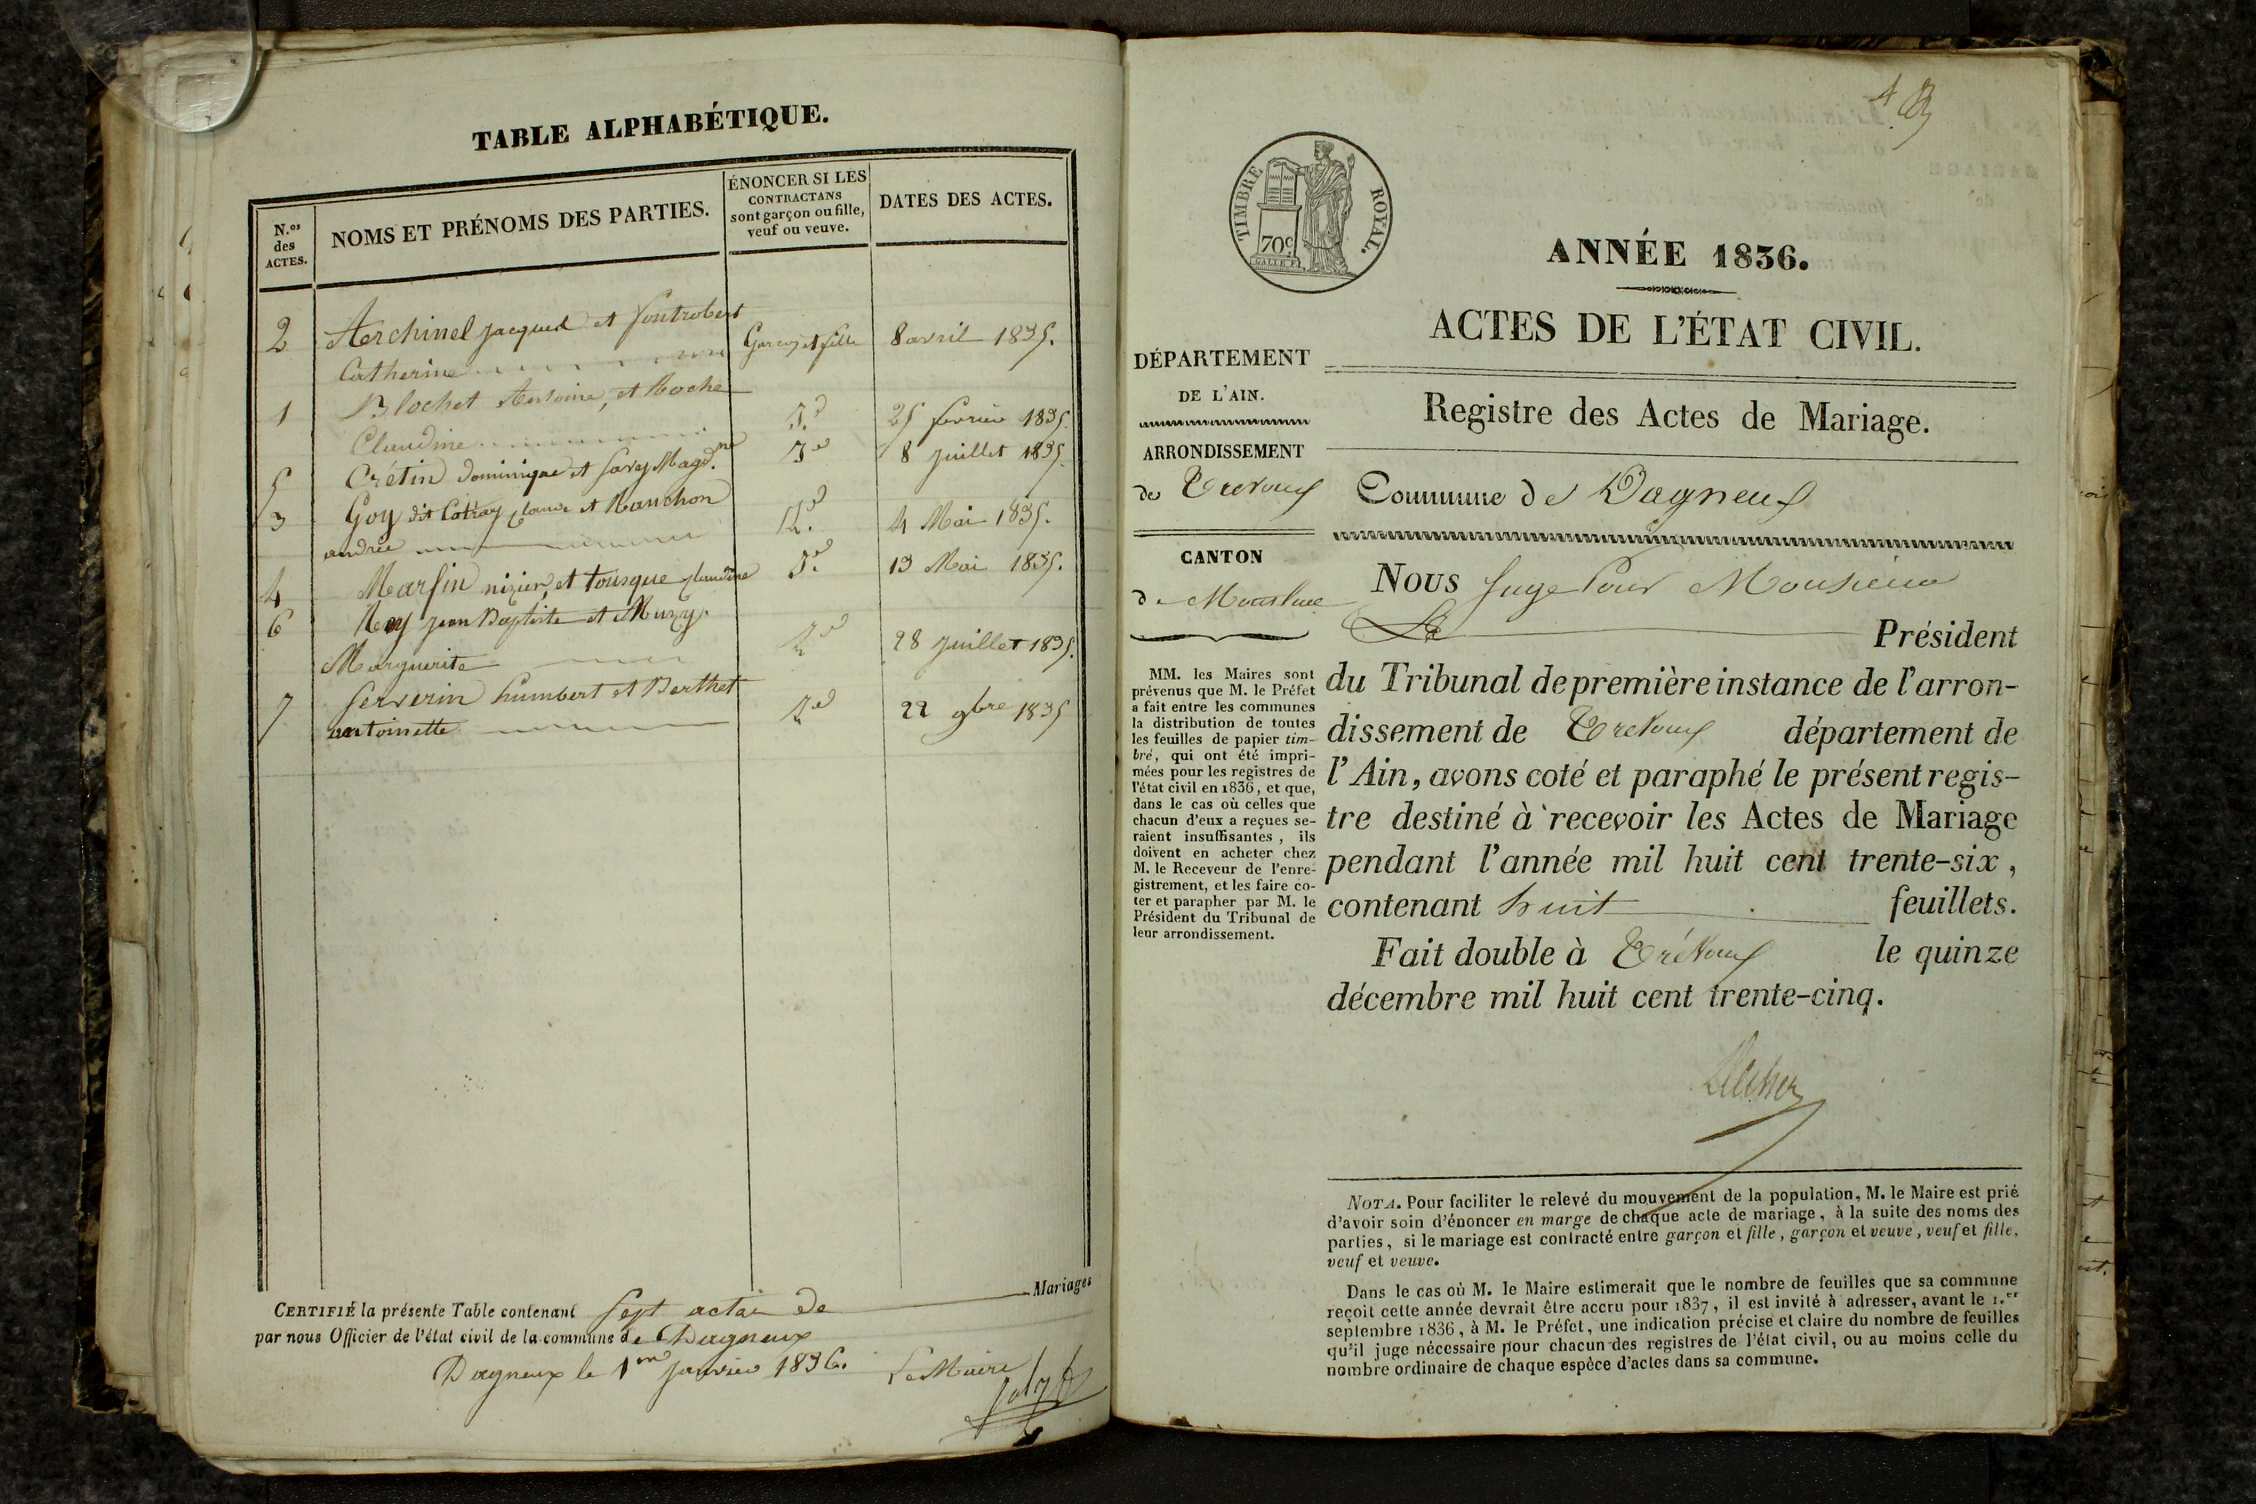 TABLE ALPHABÉTIQUE.
N.os des ACTES.
NOMS ET PRÉNOMS DES PARTIES.
ÉNONCER SI LES
CONTRACTANS
sont garçon ou fille,
veuf ou veuve.
DATES DES ACTES.
2 Aerchinel jacques et fontrobert Garçon et fille 8 avril 1835.
Catherine
1 Blochet Antoine, et Roche
Claudine 25 fevrier 1835.
5 Crétin dominique et Magd.ne 8 juillet 1835.
3 Goy dit et Manchon 4 Mai 1835.
andrée
4 Marfin nizier, et tousque 13 Mai 1835.
6 Rey jean Baptiste et Muzy
Marguerite 28 juillet 1835.
7 Serverin humbert et Berthet
antoinette 22 9bre 1835
CERTIFIÉ la présente Table contenant Sept actes de Mariages
par nous Officier de l'état civil de la commune de Dagneux
Dagneux le 1er janvier 1836. Le Maire
TIMBRE ROYAL.
70c
ANNÉE 1836.
ACTES DE L'ÉTAT CIVIL.
Registre des Actes de Mariage.
DÉPARTEMENT
DE L'AIN.
ARRONDISSEMENT
de Trevoux
CANTON
de Montluel
MM. les Maires sont
prévenus que M. le Préfet
a fait entre les communes
la distribution de toutes
les feuilles de papier tim-
bré, qui ont été impri-
mées pour les registres de
l'état civil en 1836, et que,
dans le cas où celles que
chacun d'eux a reçues se-
raient insuffisantes, ils
doivent en acheter chez
M. le Receveur de l'enre-
gistrement, et les faire co-
ter et parapher par M. le
Président du Tribunal de
leur arrondissement.
Commune de Dagneux
Nous Juge Pour Monsieur
Le Président
du Tribunal de première instance de l'arron-
dissement de Trevoux département de
l'Ain, avons coté et paraphé le présent regis-
tre destiné à recevoir les Actes de Mariage
pendant l'année mil huit cent trente-six,
contenant huit feuillets.
Fait double à Trévoux le quinze
décembre mil huit cent trente-cinq.
NOTA. Pour faciliter le relevé du mouvement de la population, M. le Maire est prié
d'avoir soin d'énoncer en marge de chaque acte de mariage, à la suite des noms des
parties, si le mariage est contracté entre garçon et fille, garçon et veuve, veuf et fille,
veuf et veuve.
Dans le cas où M. le Maire estimerait que le nombre de feuilles que sa commune
reçoit cette année devrait être accru pour 1837, il est invité à adresser, avant le 1.er
septembre 1836, à M. le Préfet, une indication précise et claire du nombre de feuilles
qu'il juge nécessaire pour chacun des registres de l'état civil, ou au moins celle du
nombre ordinaire de chaque espèce d'actes dans sa commune.